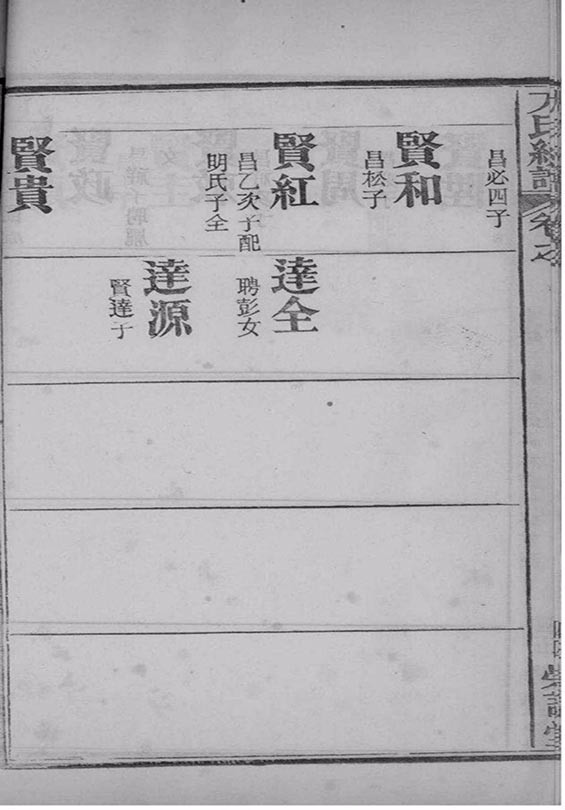 氏總譜
卷之
昌必四子
賢和
昌松子
賢紅
昌乙次子配
明氏子全
賢貴
達全
聘彭女
達源
賢達子